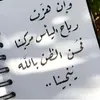 وإن هزت
رياح اليأس مركبنا
فحسن الظن بالله
ينجينا..